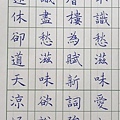 識愁滋味
層樓為賦新詞
盡愁滋味欲說
還休卻道天涼好